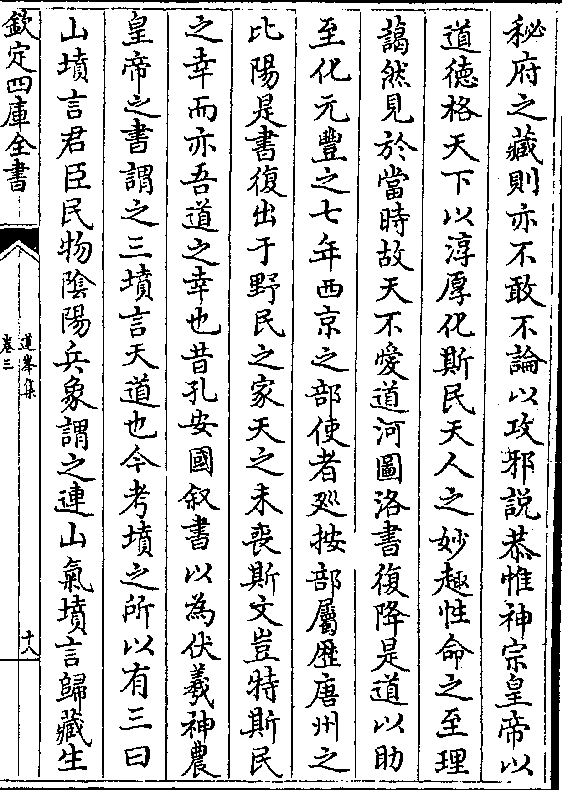 秘府之藏則亦不敢不論以攻邪說恭惟神宗皇帝以
道徳格天下以淳厚化斯民天人之妙趣性命之至理
藹然見於當時故天不愛道河圖洛書復降是道以助
至化元豐之七年西京之部使者廵按部屬歴唐州之
比陽是書復出于野民之家天之未喪斯文豈特斯民
之幸而亦吾道之幸也昔孔安國叙書以為伏羲神農
皇帝之書謂之三墳言天道也今考墳之所以有三曰
山墳言君臣民物陰陽兵象謂之連山氣墳言歸藏生
欽定四庫全書
道峯集
卷三
十八